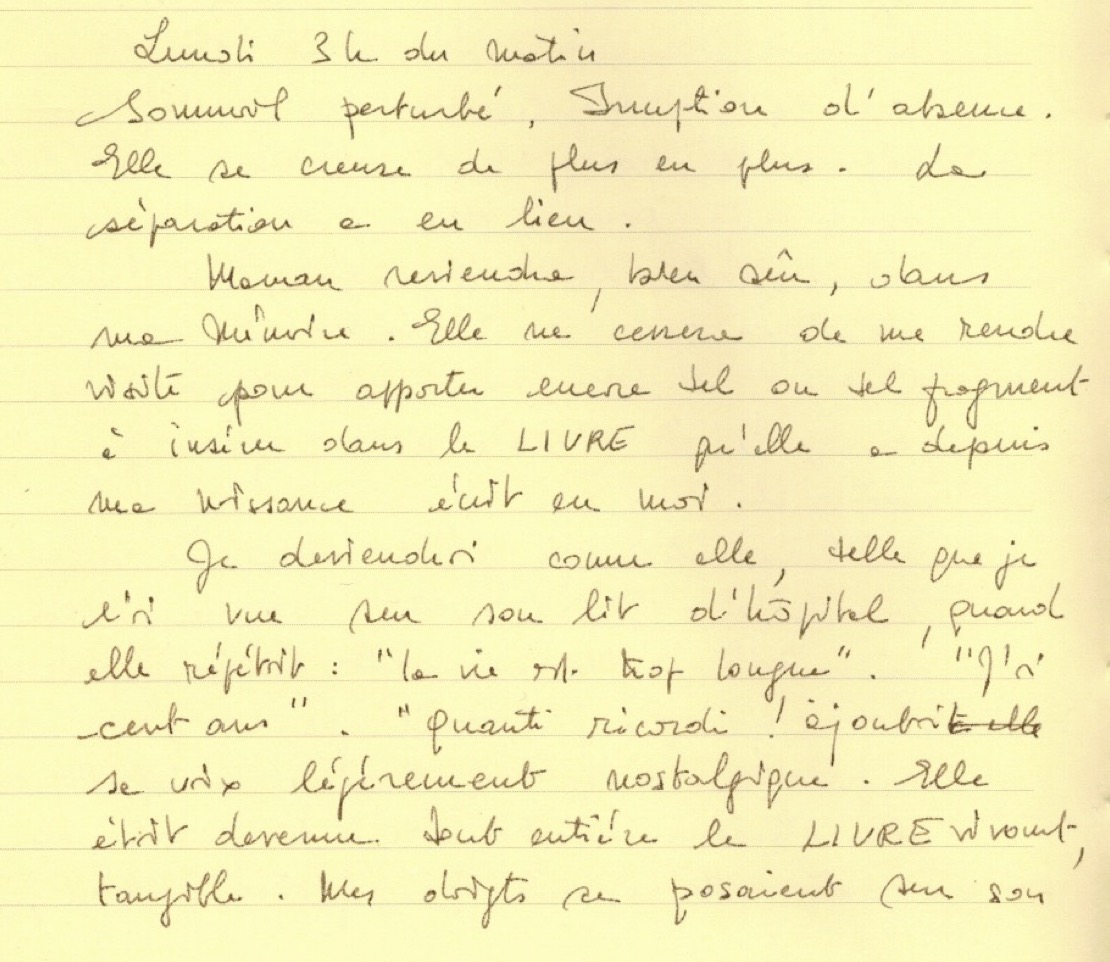 Lundi 3h du matin
Sommeil perturbé, Irruption d'absence.
Elle se creuse de plus en plus. La
séparation a eu lieu.
Maman reviendra, bien sûr, dans
ma Mémoire. Elle ne cessera de me rendre
visite pour apporter encore tel ou tel fragment
à insérer dans le LIVRE qu'elle a depuis
ma naissance écrit en moi.
Je deviendrai comme elle, telle que je
l'ai vue sur son lit d'hôpital, quand
elle répétait : "la vie est trop longue". "J'ai
cent ans". "Quanti ricordi ! ajoutait elle
sa voix légèrement nostalgique. Elle
était devenue tout entière le LIVRE vivant,
tangible. Mes doigts se posaient sur son